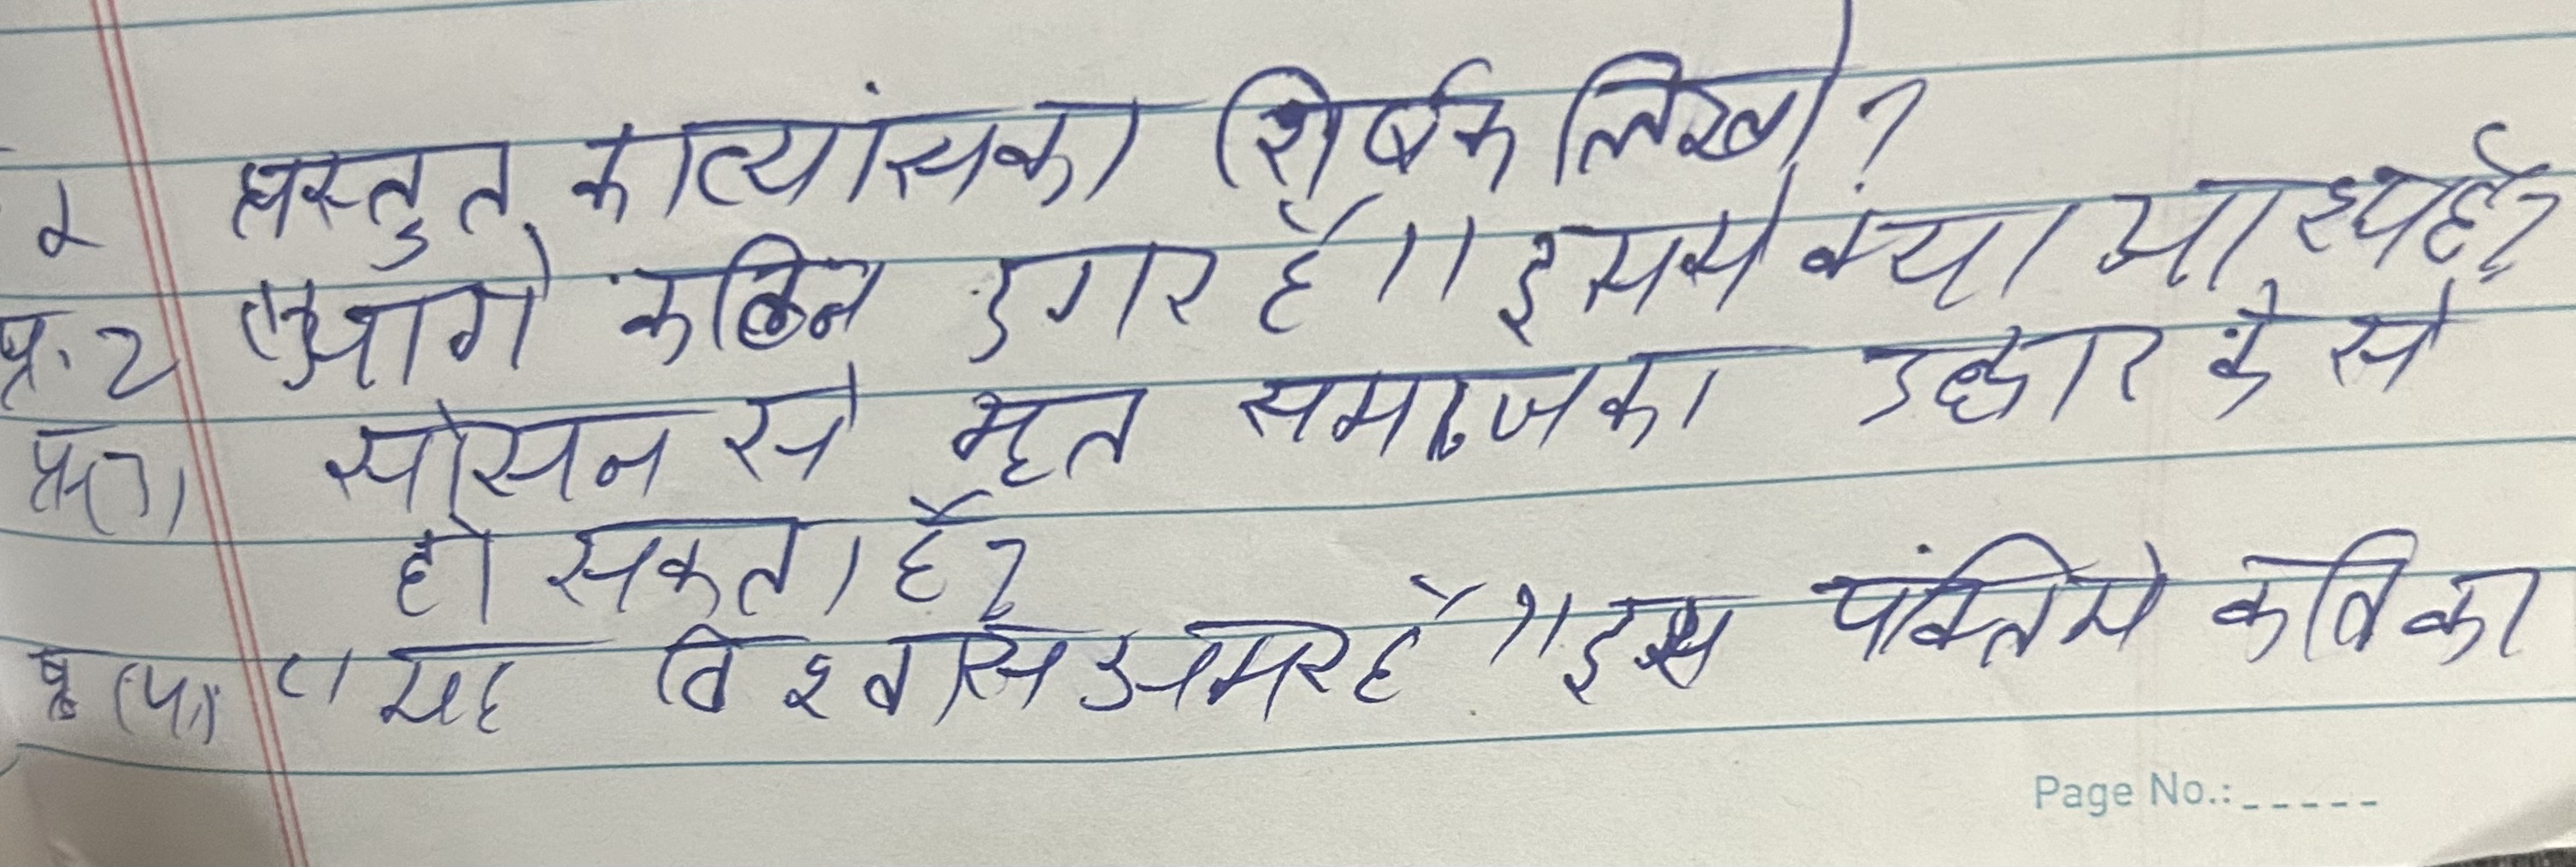 १ प्रस्तुत काव्यांसका शिर्षक लिखो?
प्र.2 "आगे कठिन डगर है" इसमे क्या आश्यहै?
प्र(3) सोसन से मृत समाजका उद्धार कैसे
हो सकता है?
प्र(4) "यह विश्वास अमरहै" इस पंक्तिमे कविका
Page No.:_____